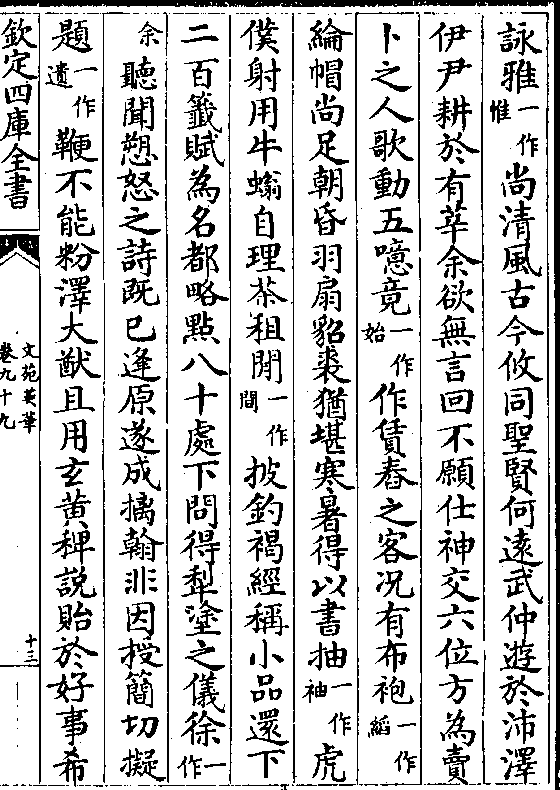 詠雅一作惟尚清風古今攸同聖賢何遠武仲遊於沛澤
伊尹耕於有莘余欲無言回不願仕神交六位方為賣
卜之人歌動五噫竟一作始作賃舂之客况有布袍一作縚
綸帽尚足朝昏羽扇貂裘猶堪寒暑得以書抽一作袖虎
僕射用牛螉自理茶租閒一作間披釣褐經稱小品還下
二百籤賦為名都略點八十處下問得犁塗之儀徐一作
余聽聞愬怒之詩既已逢原遂成摛翰非因授簡切擬
題一作遺鞭不能粉澤大猷且用玄黄稗説貽於好事希
欽定四庫全書
文苑英華
卷九十九
十三